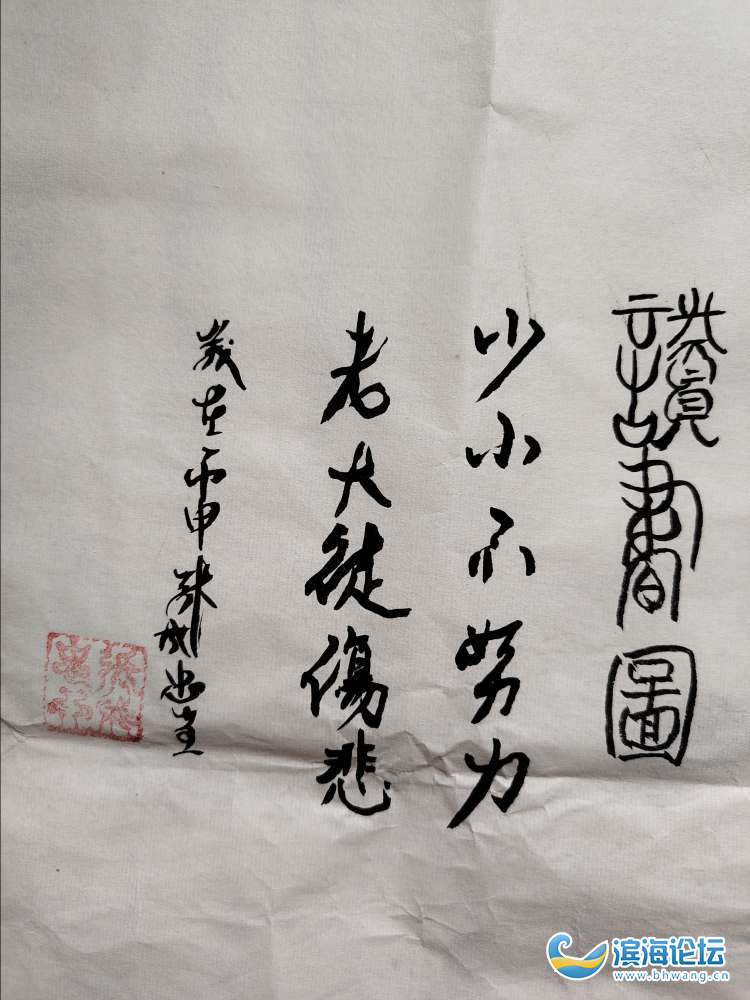 讀書圖
少小不努力
老大徒傷悲
歲在丙申張成忠
張成忠印
滨海论坛
www.bhwang.cn